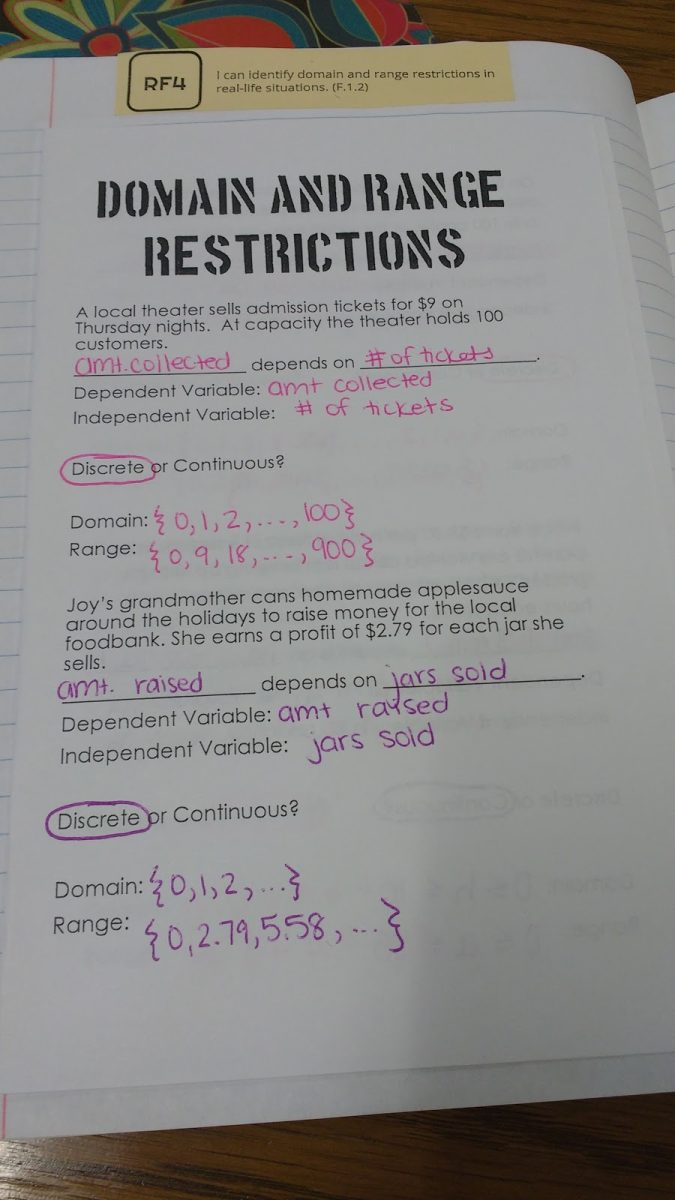 RF4
I can identify domain and range restrictions in
real-life situations. (F.1.2)
DOMAIN AND RANGE
RESTRICTIONS
A local theater sells admission tickets for $9 on
Thursday nights. At capacity the theater holds 100
customers.
amt. collected depends on # of tickets.
Dependent Variable: amt collected
Independent Variable: # of tickets
Discrete or Continuous?
Domain: {0,1,2,...,100}
Range: {0,9,18,...,900}
Joy's grandmother cans homemade applesauce
around the holidays to raise money for the local
foodbank. She earns a profit of $2.79 for each jar she
sells.
amt. raised depends on jars sold.
Dependent Variable: amt raised
Independent Variable: jars sold
Discrete or Continuous?
Domain: {0,1,2,...}
Range: {0,2.79,5.58,...}